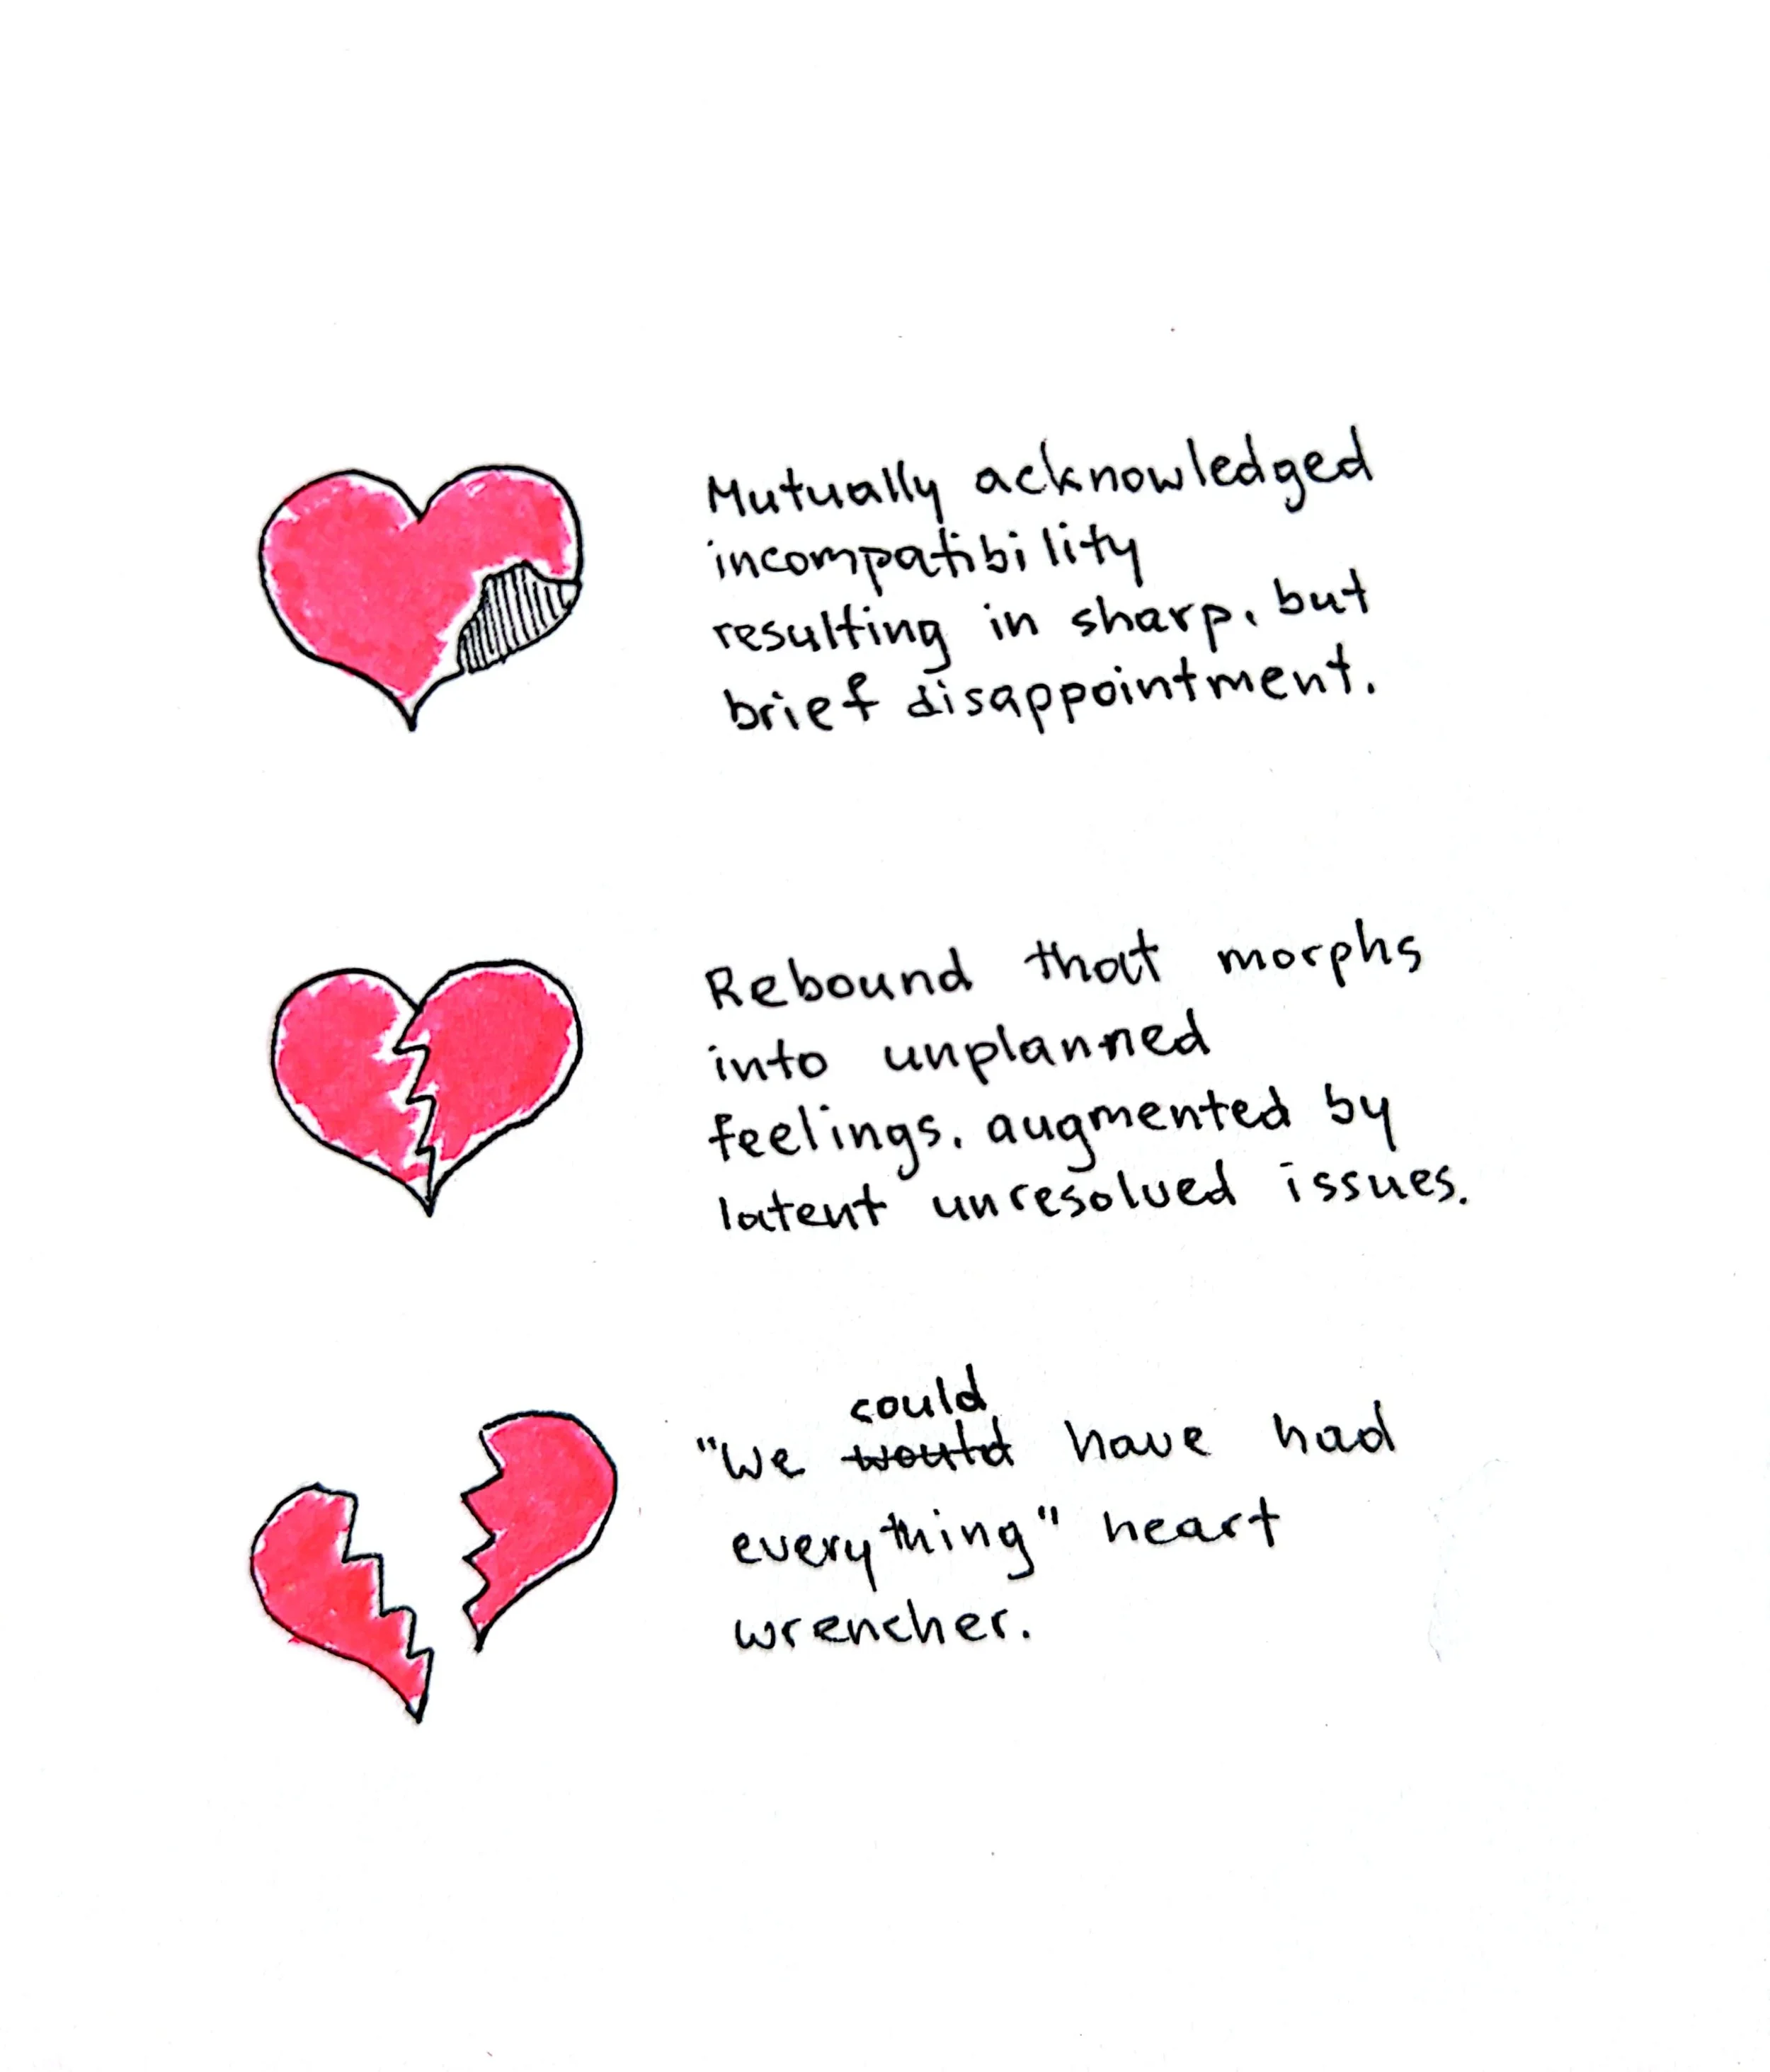 Mutually acknowledged
incompatibility
resulting in sharp, but
brief disappointment.
Rebound that morphs
into unplanned
feelings, augmented by
latent unresolved issues.
could
"We would have had
everything" heart
wrencher.